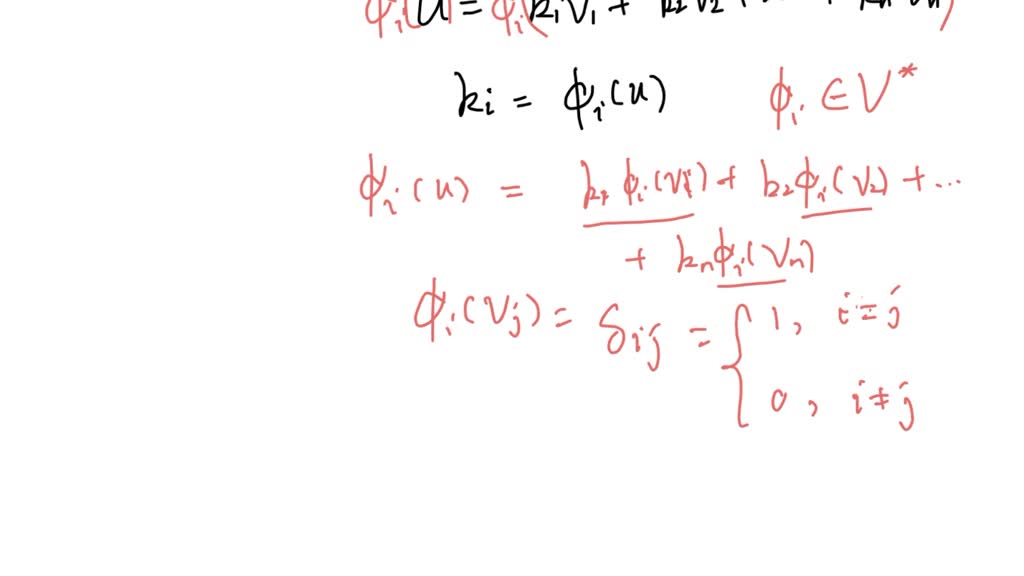 ϕᵢ(u) = ϕᵢ(k₁v₁ + k₂v₂ + ... + kₙvₙ)
kᵢ = ϕᵢ(u) ϕᵢ ∈ V*
ϕᵢ(u) = k₁ϕᵢ(v₁) + k₂ϕᵢ(v₂) + ...
+ kₙϕᵢ(vₙ)
ϕᵢ(vⱼ) = δᵢⱼ = { 1, i = j
0, i ≠ j